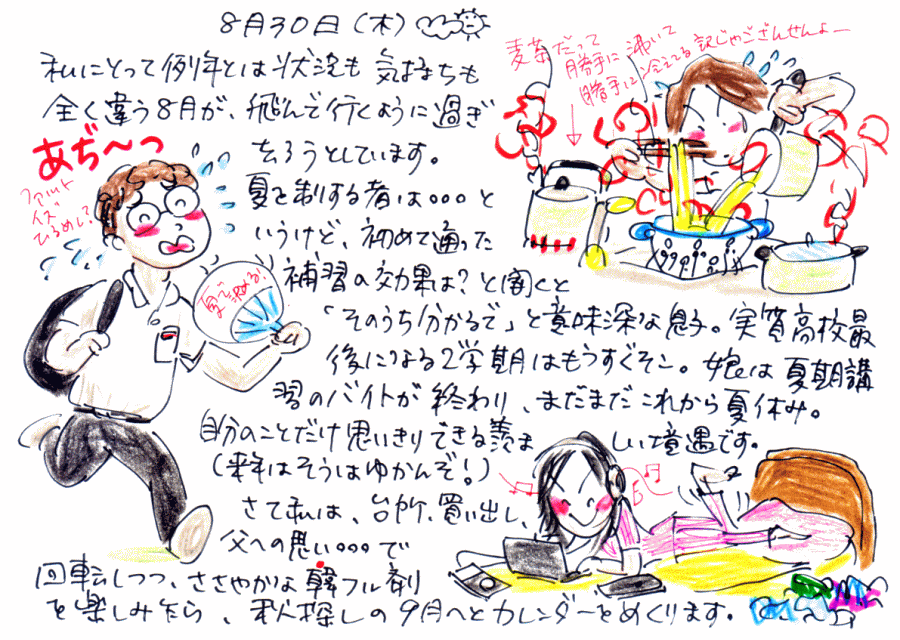 8月30日(木)
私にとって例年とは状況も気持ちも
全く違う8月が、飛んで行くように過ぎ
去ろうとしています。
夏を制する者は。。。と
いうけど、初めて通った
補習の効果は?と聞くと
「そのうち分かるで」と意味深な息子。実質高校最
後になる2学期はもうすぐそこ。娘は夏期講
習のバイトが終わり、まだまだこれから夏休み。
自分のことだけ思いきりできる羨ましい境遇です。
(来年はそうはゆかんぞ!)
さて私は、台所、買い出し、
父への思い。。。で
回転しつつ、ささやかな韓フル剤
を楽しみながら、秋探しの9月へとカレンダーをめくります。
あぢ〜っ
ファルト
イズ
ひるめし?
夏で決める!
麦茶だって
勝手に沸いて
勝手に冷えてる訳じゃござんせんよー